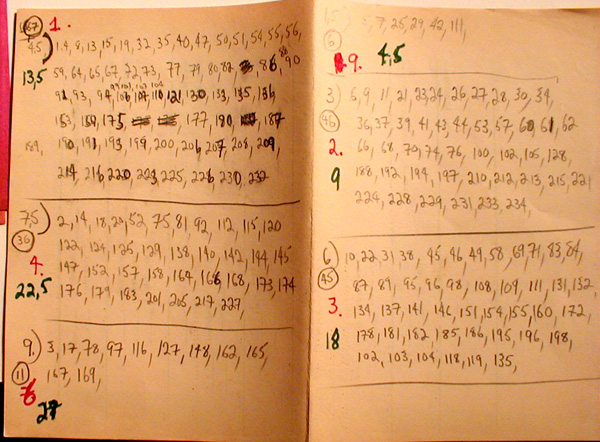 1.
4,5) 1.4, 8, 13, 15, 19, 32, 35, 40, 47, 50, 51, 54, 55, 56,
13,5 59, 64, 65, 67, 72, 73, 77, 79, 80, 82, 86, 90
91, 93, 94, 106, 107, 110, 121, 130, 133, 135, 136
175 177 187
189, 190, 191, 193, 199, 200, 206, 207, 208, 209,
214, 216, 220, 223, 225, 226, 230, 232
7,5) 2, 14, 18, 20, 52, 75, 81, 92, 112, 115, 120
36 122, 124, 125, 129, 138, 140, 142, 144, 145
4. 147, 152, 157, 158, 164, 166, 168, 173, 174
22,5 176, 179, 183, 201, 205, 217, 227,
9.) 3, 17, 78, 97, 116, 127, 148, 162, 165,
11 167, 169,
27
7, 25, 29, 42, 111,
6
9. 4,5
3) 6, 9, 11, 21, 23, 24, 26, 27, 28, 30, 34,
46 36, 37, 39, 41, 43, 44, 53, 57, 60, 61, 62
2. 66, 68, 70, 74, 76, 100, 102, 105, 128,
9 188, 192, 194, 197, 210, 212, 213, 215, 221
224, 228, 229, 231, 233, 234,
6) 10, 22, 31, 38, 45, 46, 49, 58, 69, 71, 83, 84,
45 87, 89, 95, 96, 98, 108, 109, 111, 131, 132,
3. 134, 137, 141, 146, 151, 154, 155, 160, 172,
18 178, 181, 182, 185, 186, 195, 196, 198,
102, 103, 104, 118, 119, 135,